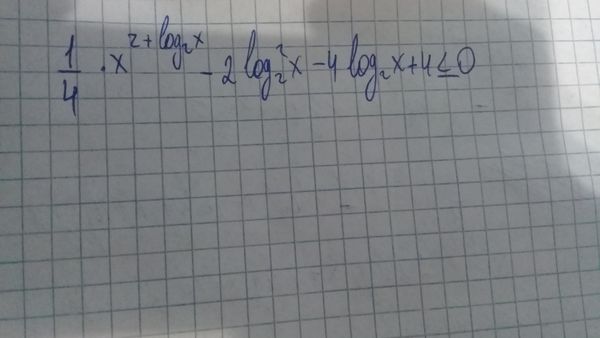 1/4 · x^(2+log₂x) - 2 log₂²x - 4 log₂x + 4 ≤ 0